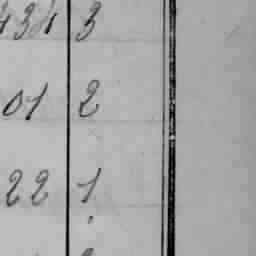 434 3
01 2
22 1